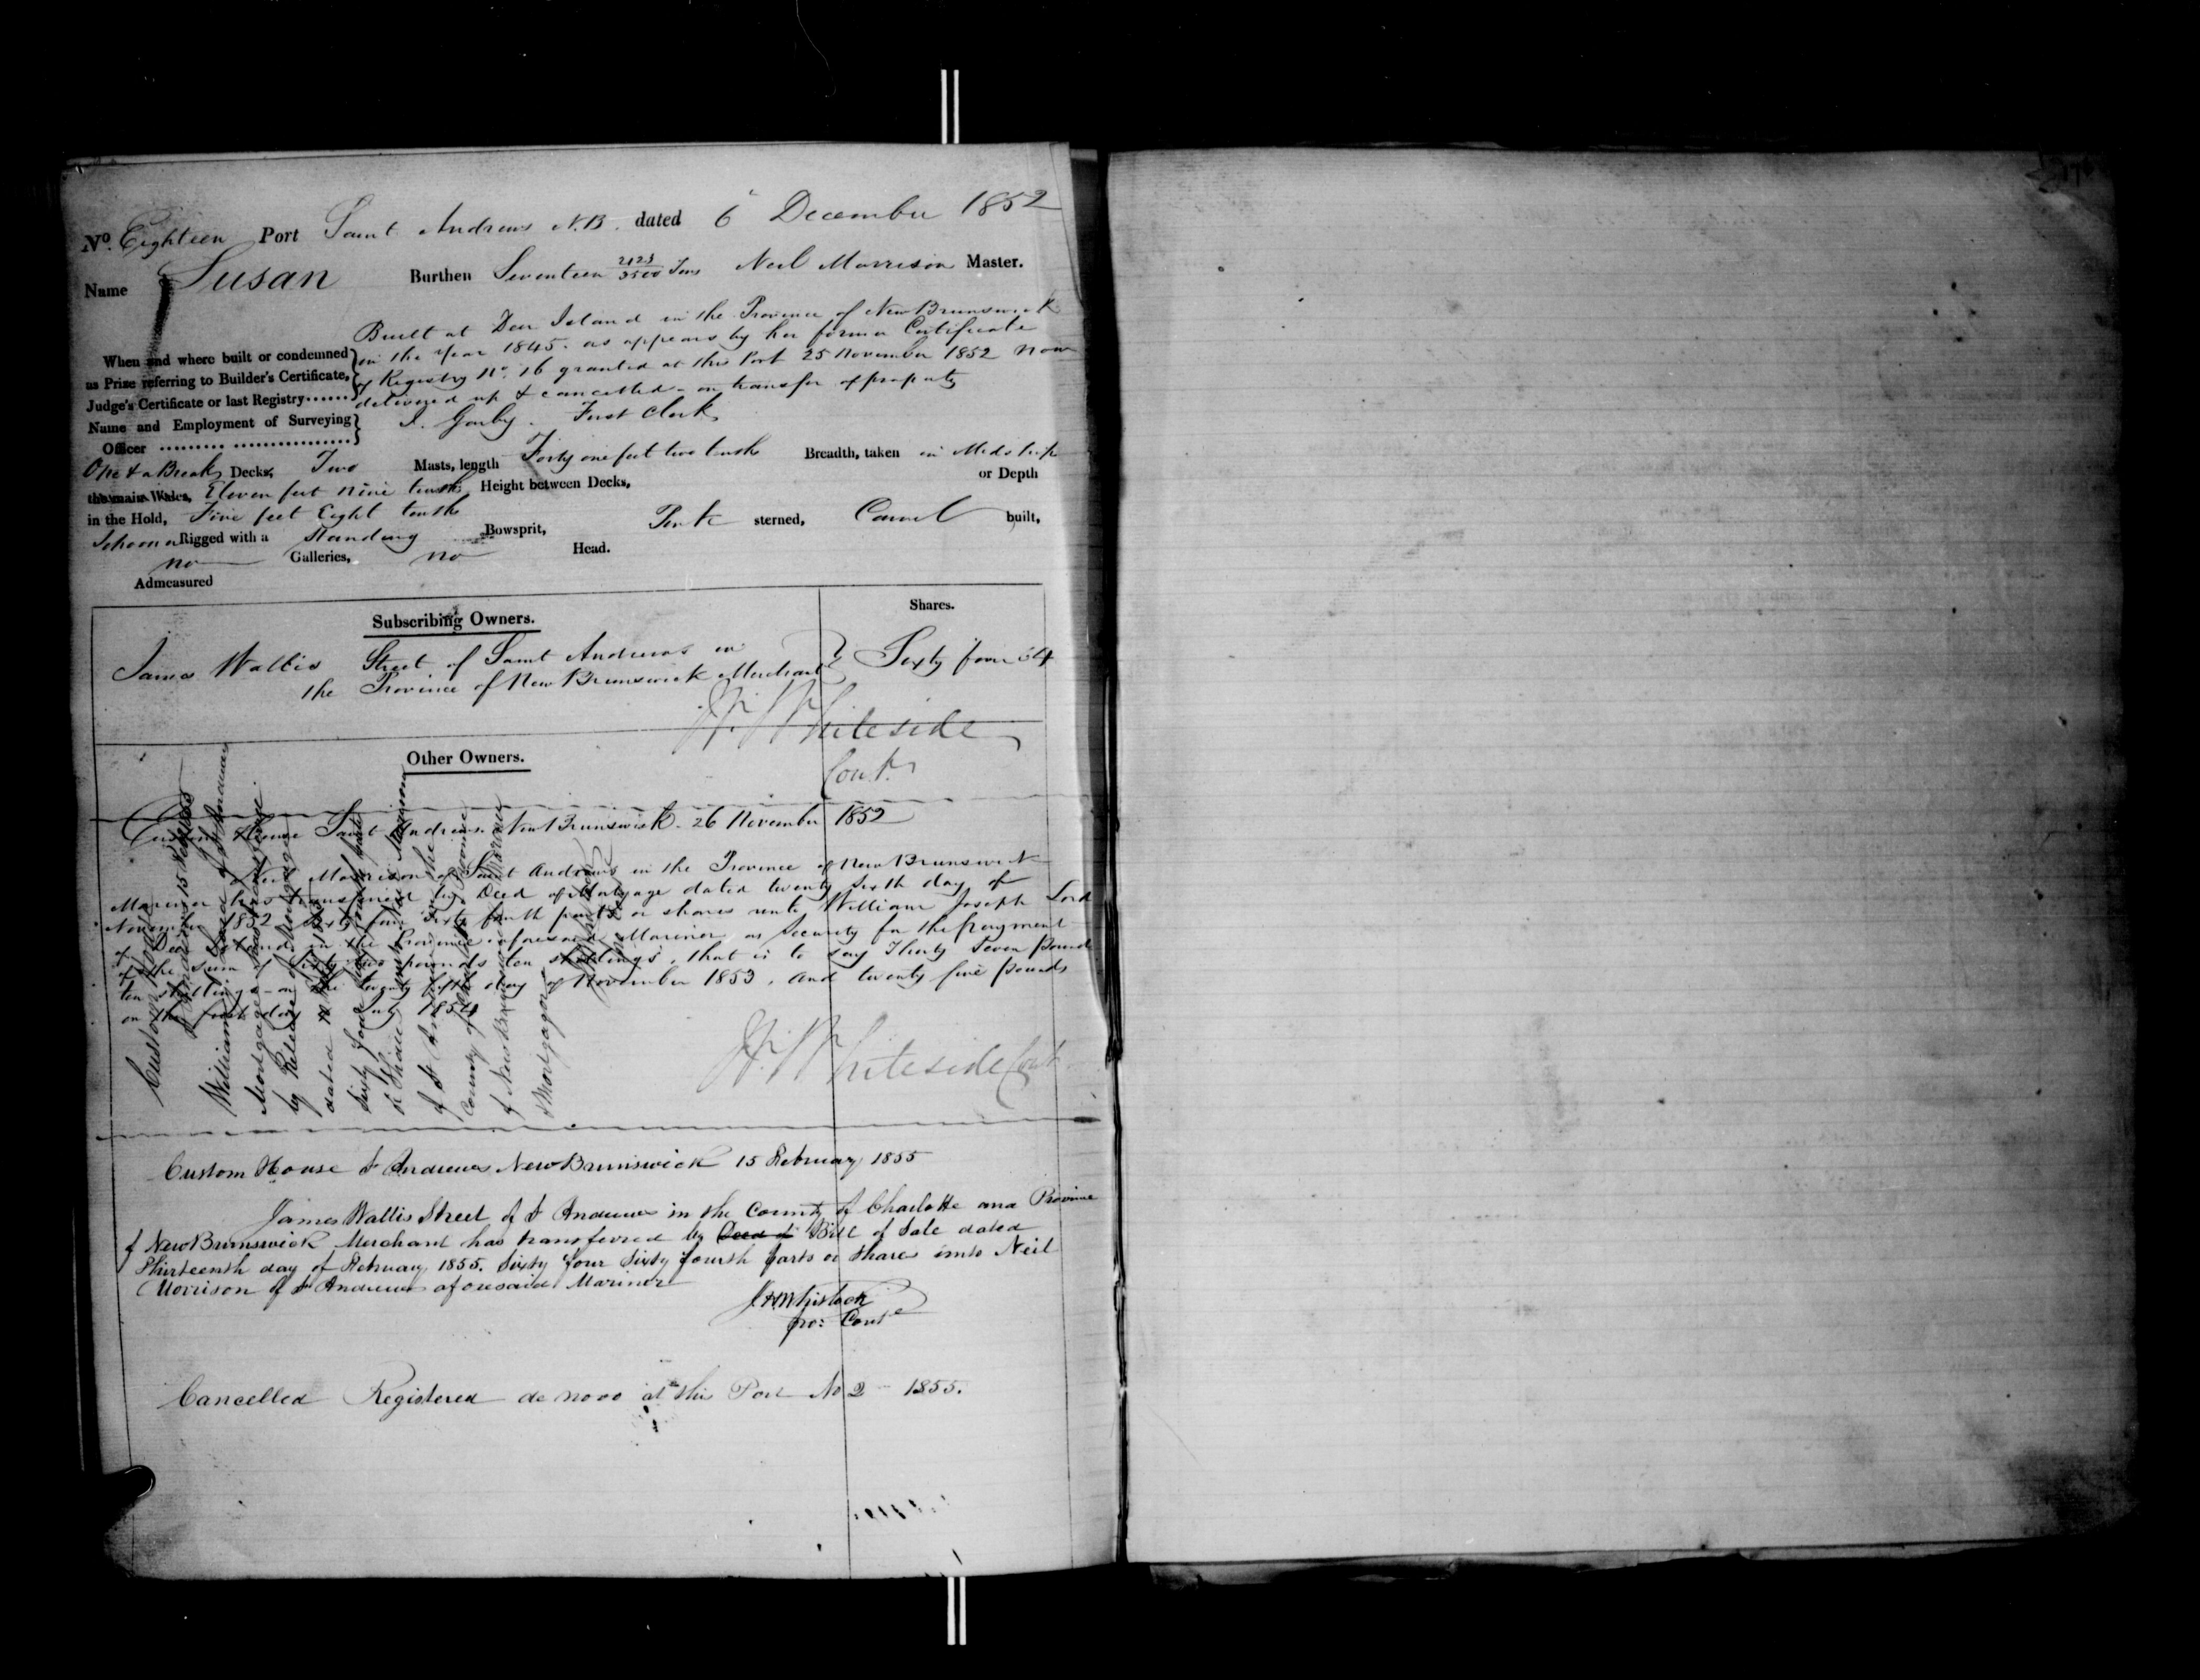 No. Eighteen Port Saint Andrews N.B. dated 6 December 1852
Name Susan Burthen Seventeen 2123/3500 Tons Neil Morrison Master.
Built at Deer Island in the Province of New Brunswick
When and where built or condemned in the year 1845. as appears by her former Certificate
as Prize referring to Builder's Certificate, of Registry No. 16 granted at this Port 25 November 1852 now
Judge's Certificate or last Registry...... delivered up & cancelled - on transfer of property
Name and Employment of Surveying First Clerk
Officer
One & a Break Decks, Two Masts, length Forty one feet two tenths Breadth, taken in Midships
the main Wales, Eleven feet nine tenths Height between Decks, or Depth
in the Hold, Five feet Eight tenths
Schooner Rigged with a Standing Bowsprit, Pink sterned, Carvel built,
no Galleries, no Head.
Admeasured
Subscribing Owners. Shares.
James Wallis Street of Saint Andrews in
the Province of New Brunswick Merchant Sixty four 64
W. Whiteside
Cont.
Other Owners.
Custom House Saint Andrews New Brunswick - 26 November 1852
Neil Morrison of Saint Andrews in the Province of New Brunswick
Mariner has transferred by Deed of Mortgage dated twenty sixth day of
November 1852 Sixty four Sixty fourth parts or shares unto William Joseph Lord
of Deer Island in the Province aforesaid Mariner as Security for the payment
of the Sum of Sixty two pounds ten shillings, that is to say Thirty Seven pounds
ten shillings - on the twenty fifth day of November 1853, and twenty five pounds
on the first day of July 1854
W. Whiteside Cont.
Custom House
St Andrews 15 February
William Lord of St Andrews
Mortgagee has transferred
by Release of Mortgage
dated 1855
Sixty four Sixty fourth parts
or Shares unto Neil Morrison
of St Andrews in the
County of Charlotte Province
of New Brunswick Mariner
Mortgagor
Custom House St Andrews New Brunswick 15 February 1855
James Wallis Street of St Andrews in the County of Charlotte and Province
of New Brunswick Merchant has transferred by Deed of Bill of Sale dated
Thirteenth day of February 1855. Sixty four Sixty fourth parts or shares unto Neil
Morrison of St Andrews aforesaid Mariner
J H Whitlock
pro: Cont
Cancelled Registered de novo at this Port No 2 - 1855.